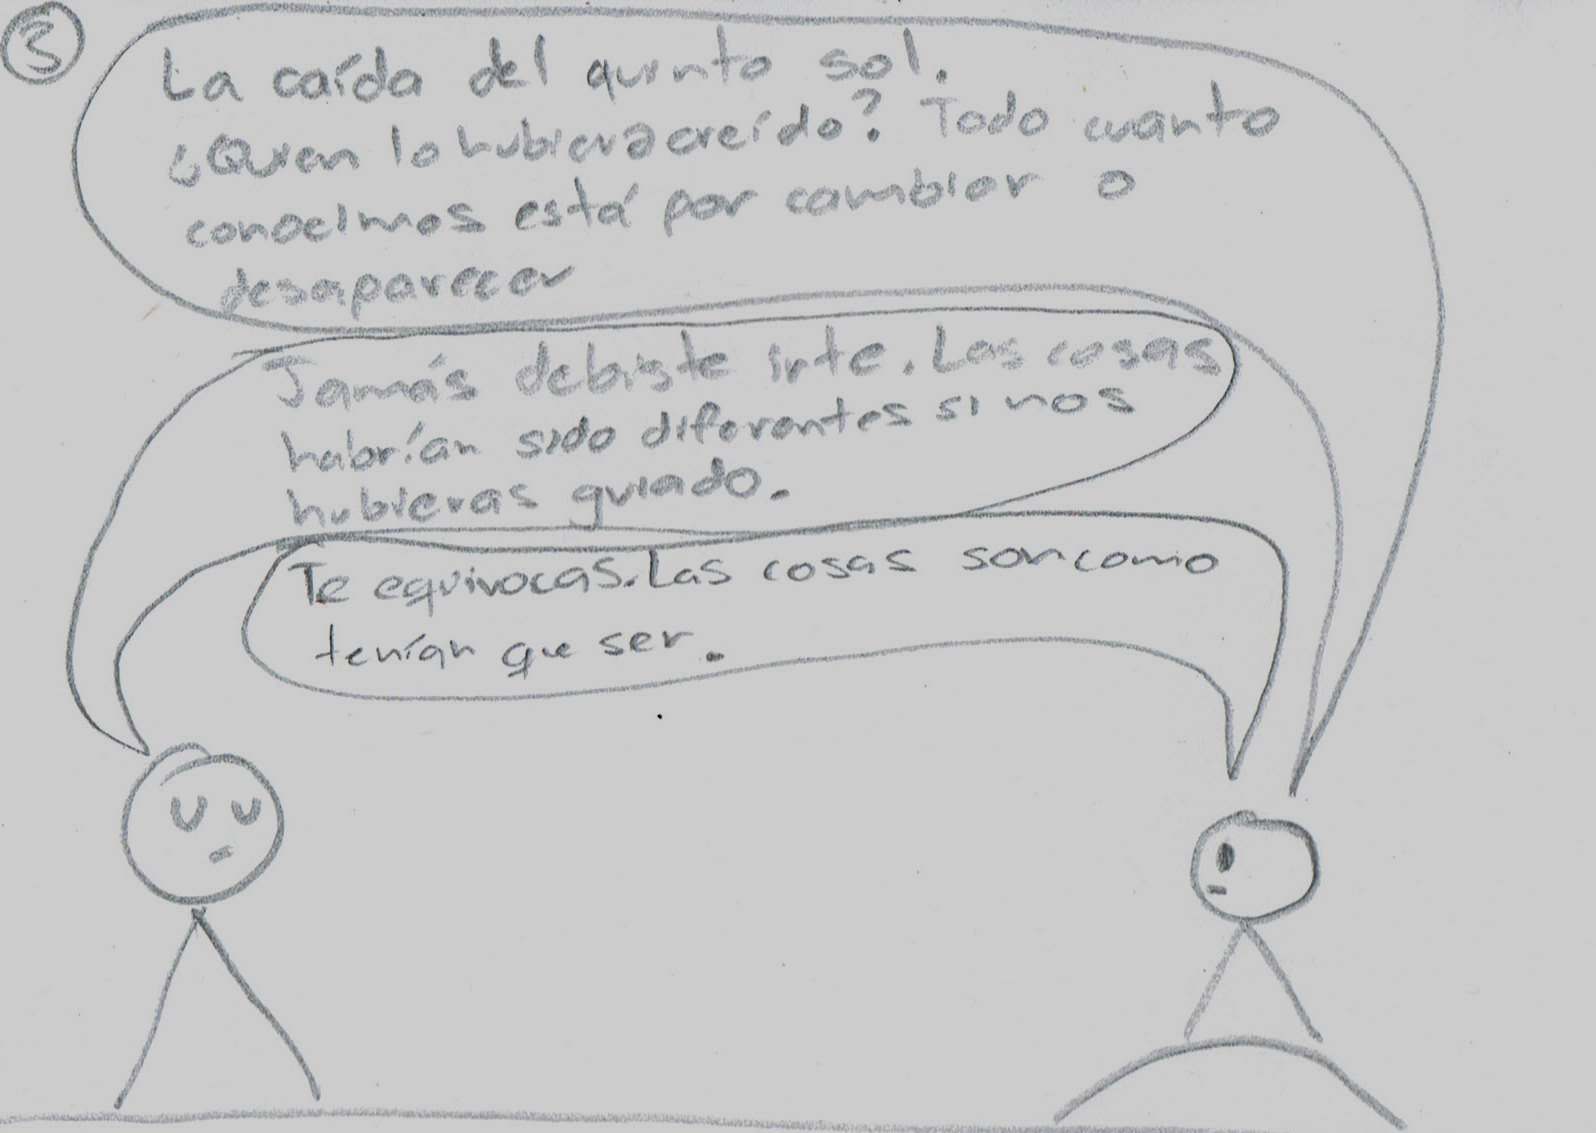 3
La caída del quinto sol.
¿Quien lo hubiera creído? Todo cuanto
conocimos está por cambiar o
desaparecer
Jamás debiste irte. Las cosas
habrían sido diferentes si nos
hubieras guiado.
Te equivocas. Las cosas son como
tenían que ser.